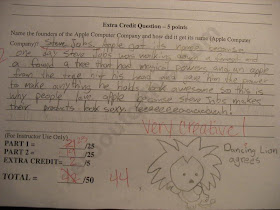 Extra Credit Question – 5 points
Name the founders of the Apple Computer Company and how did it get its name (Apple Computer
Company)? Steve Jobs. Apple got its name because
one day Steve Jobs was walking along and
found a tree that had magical and an apple
from the tree hit his head and gave him the power
to make anything he holds look awesome so this is
why people love apple because Steve Jobs makes
their products look
Very Creative!
(For Instructor Use Only)
PART 1 = /25
PART 2 = /25
EXTRA CREDIT= /5
TOTAL = /50 44
Dancing Lion
agrees